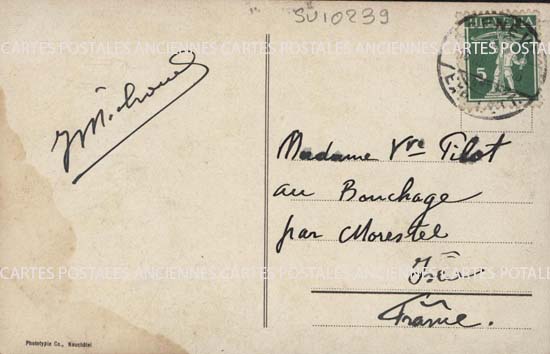 SU10239
HELVETIA
5
CARTES POSTALES ANCIENNES CARTES POSTALES ANCIENNES CARTES POSTALES
Madame Vve Pilot
au Bouchage
par Morestel
CARTES POSTALES ANCIENNES CARTES POSTALES ANCIENNES CARTES POSTALES
France.
Phototypie Co., Neuchâtel